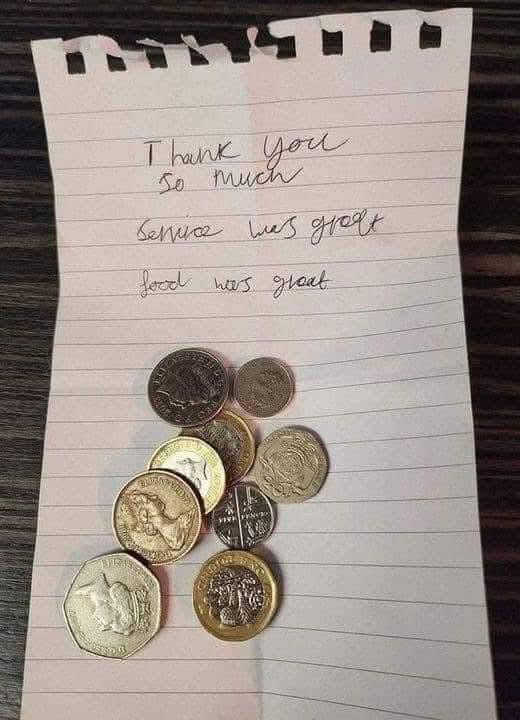 Thank you
so much
Service was great
food was great
FIVE PENCE